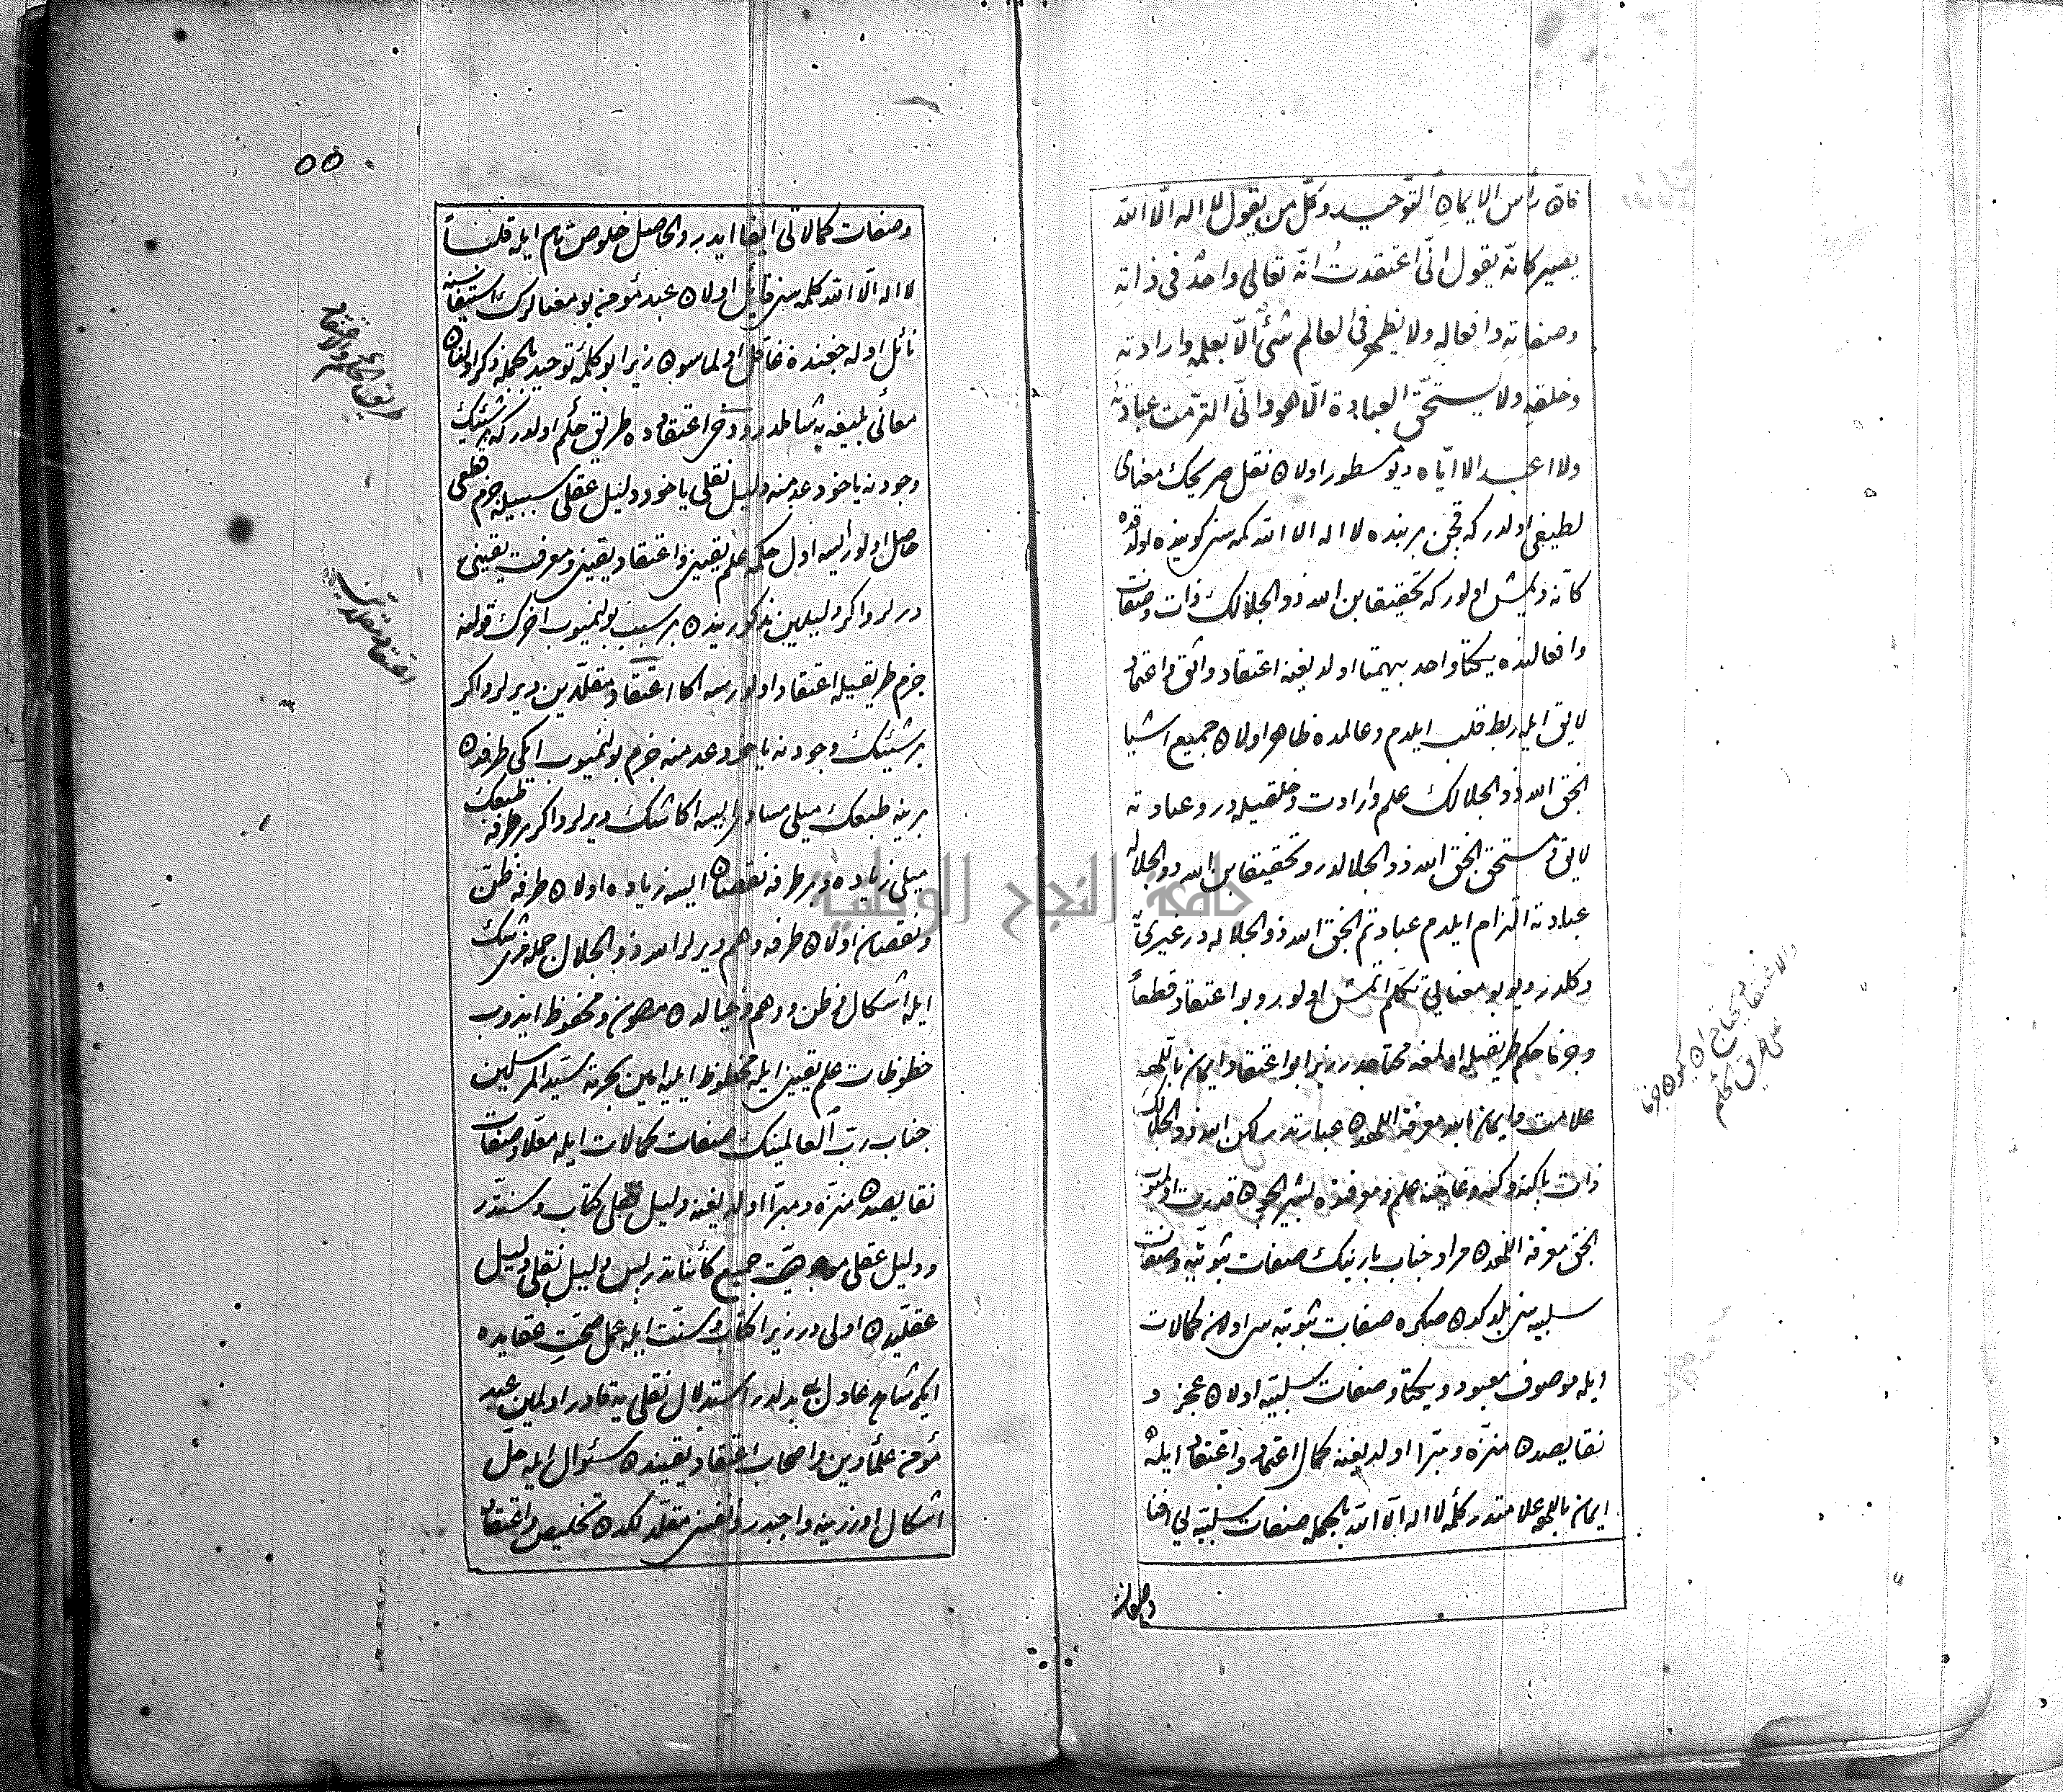 فان رأس الايمان التوحيد وكل من يقول لا اله الا الله
يصير كانه يقول انى اعتقدت انه تعالى واحد فى ذاته
وصفاته وافعاله ولا يظهر فى العالم شئ الا بعلمه وارادته
وخلقه ولا يستحق العبادة الا هو وانى التزمت عبادته
ولا اعبد الا اياه ديو مسطور اولان نقل صريحك معناى
لطيفى اولدر كه قچن بر بنده لا اله الا الله كلمه سن كوينده اولدقده
كانه ديمش اولور كه تحقيقا بن الله ذو الجلالك ذات وصفات
وافعالنده يكتا واحد بيهمتا اولديغنه اعتقاد واثق واعتماد
لايق ايله ربط قلب ايلدم وعالمده ظاهر اولان جميع اشيا
انجق الله ذو الجلالك علم وارادت وخلقيله در وعبادته
لايق ومستحق انجق الله ذو الجلالدر وتحقيقا بن الله ذو الجلاله
عبادته التزام ايلدم عبادتم انجق الله ذو الجلاله در غيرى
دكلدر ديو بو معنايى تكلم اتمش اولور وبو اعتقاد قطعاً
وجزما حكم طريقيله اولمغه محتاجدر زيرا بو اعتقاد ايمان باللهه
علامت وايمان بالله معرفة اللهدن عبارتدر لكن الله ذو الجلالك
ذات پاكنه وكنه وغايتنه علم ومعرفتده بشرك قدرت اولميوب
انجق معرفة اللهدن مراد جناب بارينك صفات ثبوتيه وصفات
سلبيه سن بلمكدن صكره صفات ثبوتيه سى اولان كمالات
ايله موصوف معبود ويكتا وصفات سلبيه اولان عجز و
نقايصدن منزه ومبرا اولديغنه كمال اعتماد واعتقاد ايله
ايمان باللهه علامتدر كلمه لا اله الا الله بالجمله صفات سلبيه يى افنا
وصفات
والاعتقاد محتاج ان يكون جزما
على طريق الحكم
٥٥
وصفات كمالاتى ابقا ايدر والحاصل خلوص تام ايله قلباً
لا اله الا الله كلمه سن قائل اولان عبد مؤمن بو معنالرك استيفاسنه
نائل اوله جغنده غافل اولماسون زيرا بو كلمه توحيد بالجمله ذكر اولنان
معانى لطيفه يه شاملدر ودخى اعتقادده طريق حكم اولدر كه بر شيئك
وجودنه ياخود عدمنه دليل نقلى ياخود دليل عقلى سببيله جزم قطعى
حاصل اولور ايسه اول حكمه علم يقين واعتقاد يقين ومعرفت يقين
ديرلر واكر دليلين مذكوريندن بر سبب بولنميوب اخرك قولنه
جزم طريقيله اعتقاد اولنورسه اكا اعتقاد مقلدين ديرلر واكر
بر شيئك وجودنه ياخود عدمنه جزم بولنميوب ايكى طرفدن
برينه طبعك ميلى مساوى ايسه اكا شك ديرلر واكر بر طرفه طبعك
ميلى زياده وبر طرفه نقصان ايسه زياده اولان طرفه ظن
ونقصان اولان طرفه وهم ديرلر الله ذو الجلال جمله مزى شك
ايله اشكال وظن ووهم وخيالدن مصون ومحفوظ ايدوب
حظوظات علم يقين ايله محظوظ ايليه امين بحرمة سيد المرسلين
جناب رب العالمينك صفات كمالات ايله معلا وصفات
نقايصدن منزه ومبرا اولديغنه دليل نقلى كتاب وسنتدر
ودليل عقلى موجوديت جميع كائناتدر پس دليل نقلى دليل
عقليدن اولى در زيرا كتاب وسنت ايله عمل صحت عقايده
ايكى شاهد عادل بى بدلدر استدلال نقلى يه قادر اولمين عبد
مؤمن علماء دين واصحاب اعتقاد يقيندن سئوال ايله حل
اشكال اوزرينه واجبدر ونفسن مقلدلكدن تخليص واعتقاد
طريق الحكم والاعتقاد
اعتقاد مقلدين
جامعة النجاح الوطنية